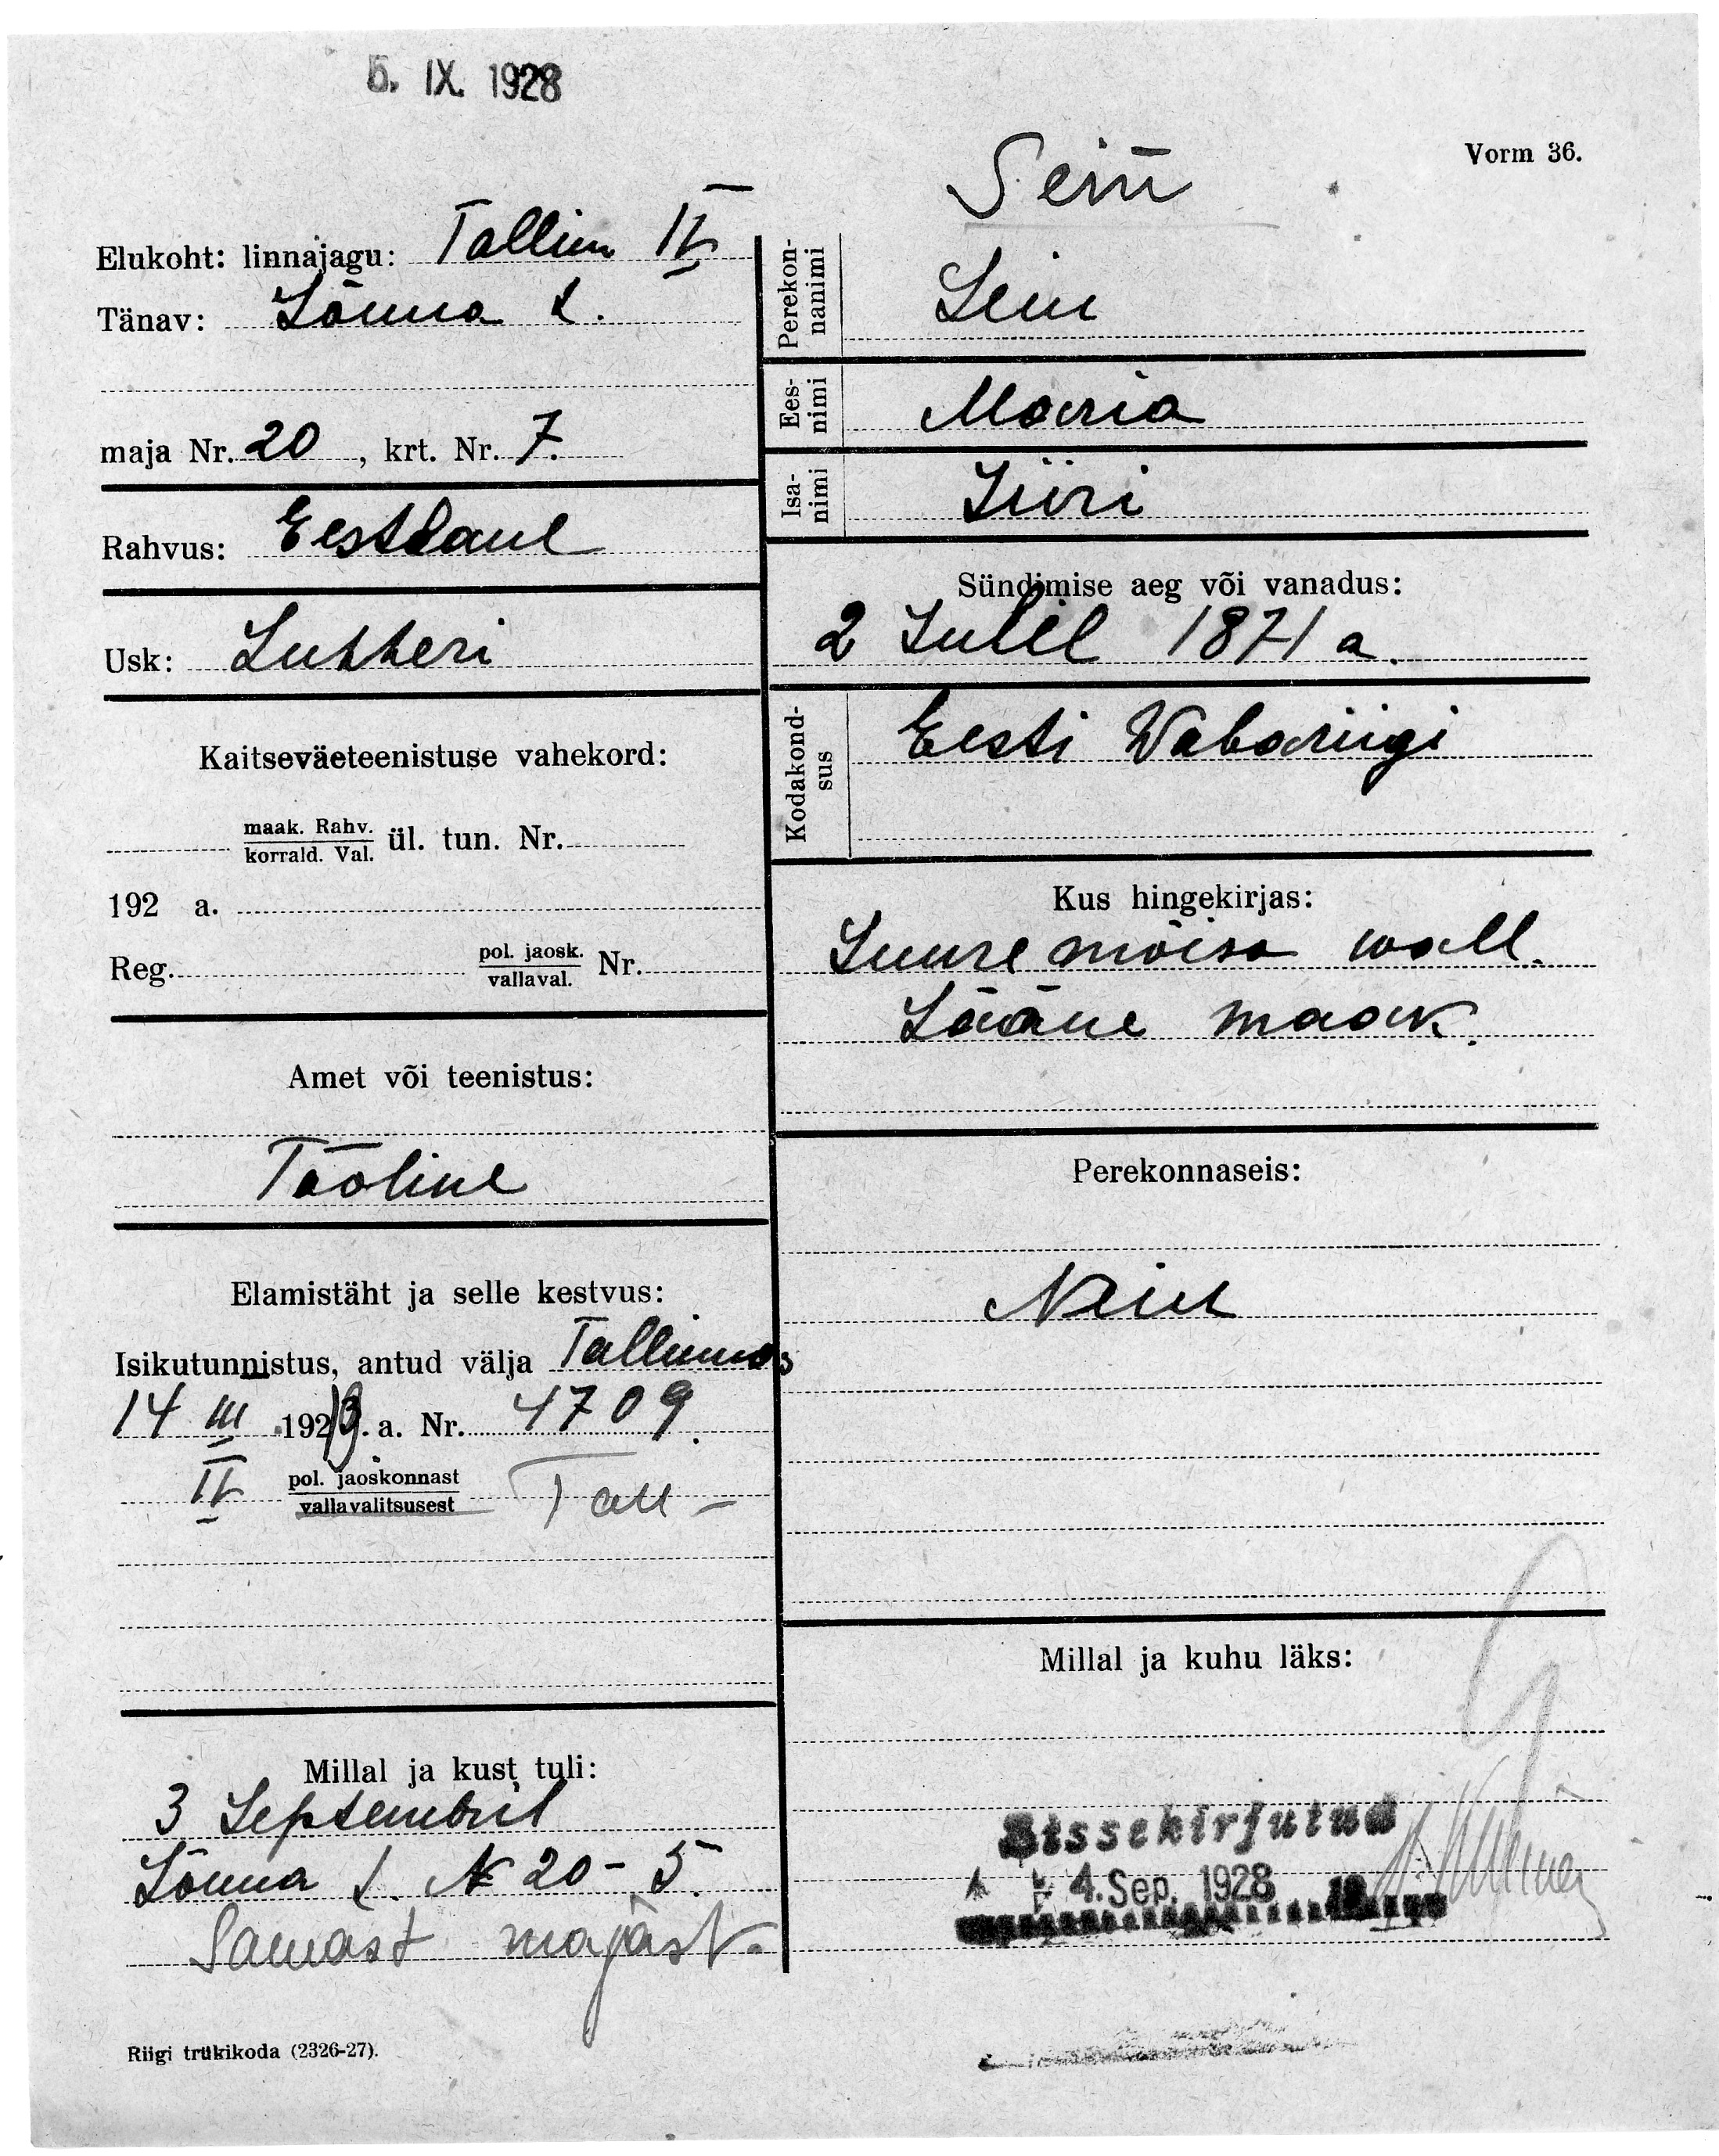 5. IX. 1928
Vorm 36.
Sein
Elukoht: linnajagu: Tallinn IV
Tänav: Sõnna t.
maja Nr. 20, krt. Nr. 7.
Rahvus: Eestlane
Usk: Lutheri
Kaitseväeteenistuse vahekord:
maak. Rahv.
korrald. Val.
ül. tun. Nr.
192 a.
Reg.
pol. jaosk.
vallaval.
Nr.
Amet või teenistus:
Tööline
Elamistäht ja selle kestvus:
Isikutunnistus, antud välja Tallinnas
14 III 1923. a. Nr. 4709.
IV pol. jaoskonnast Tall-
vallavalitsusest
Millal ja kust tuli:
3 Septembril
Sõnna t. № 20-5.
Samast majast.
Riigi trükikoda (2326-27).
Perekon-
nanimi
Sein
Ees-
nimi
Maria
Isa-
nimi
Jüri
Sündimise aeg või vanadus:
2 Julil 1871 a.
Kodakond-
sus
Eesti Wabariigi
Kus hingekirjas:
Suuremõisa wall.
Lääne maak.
Perekonnaseis:
Neiu
Millal ja kuhu läks:
Sissekirjutud
4. Sep. 1928